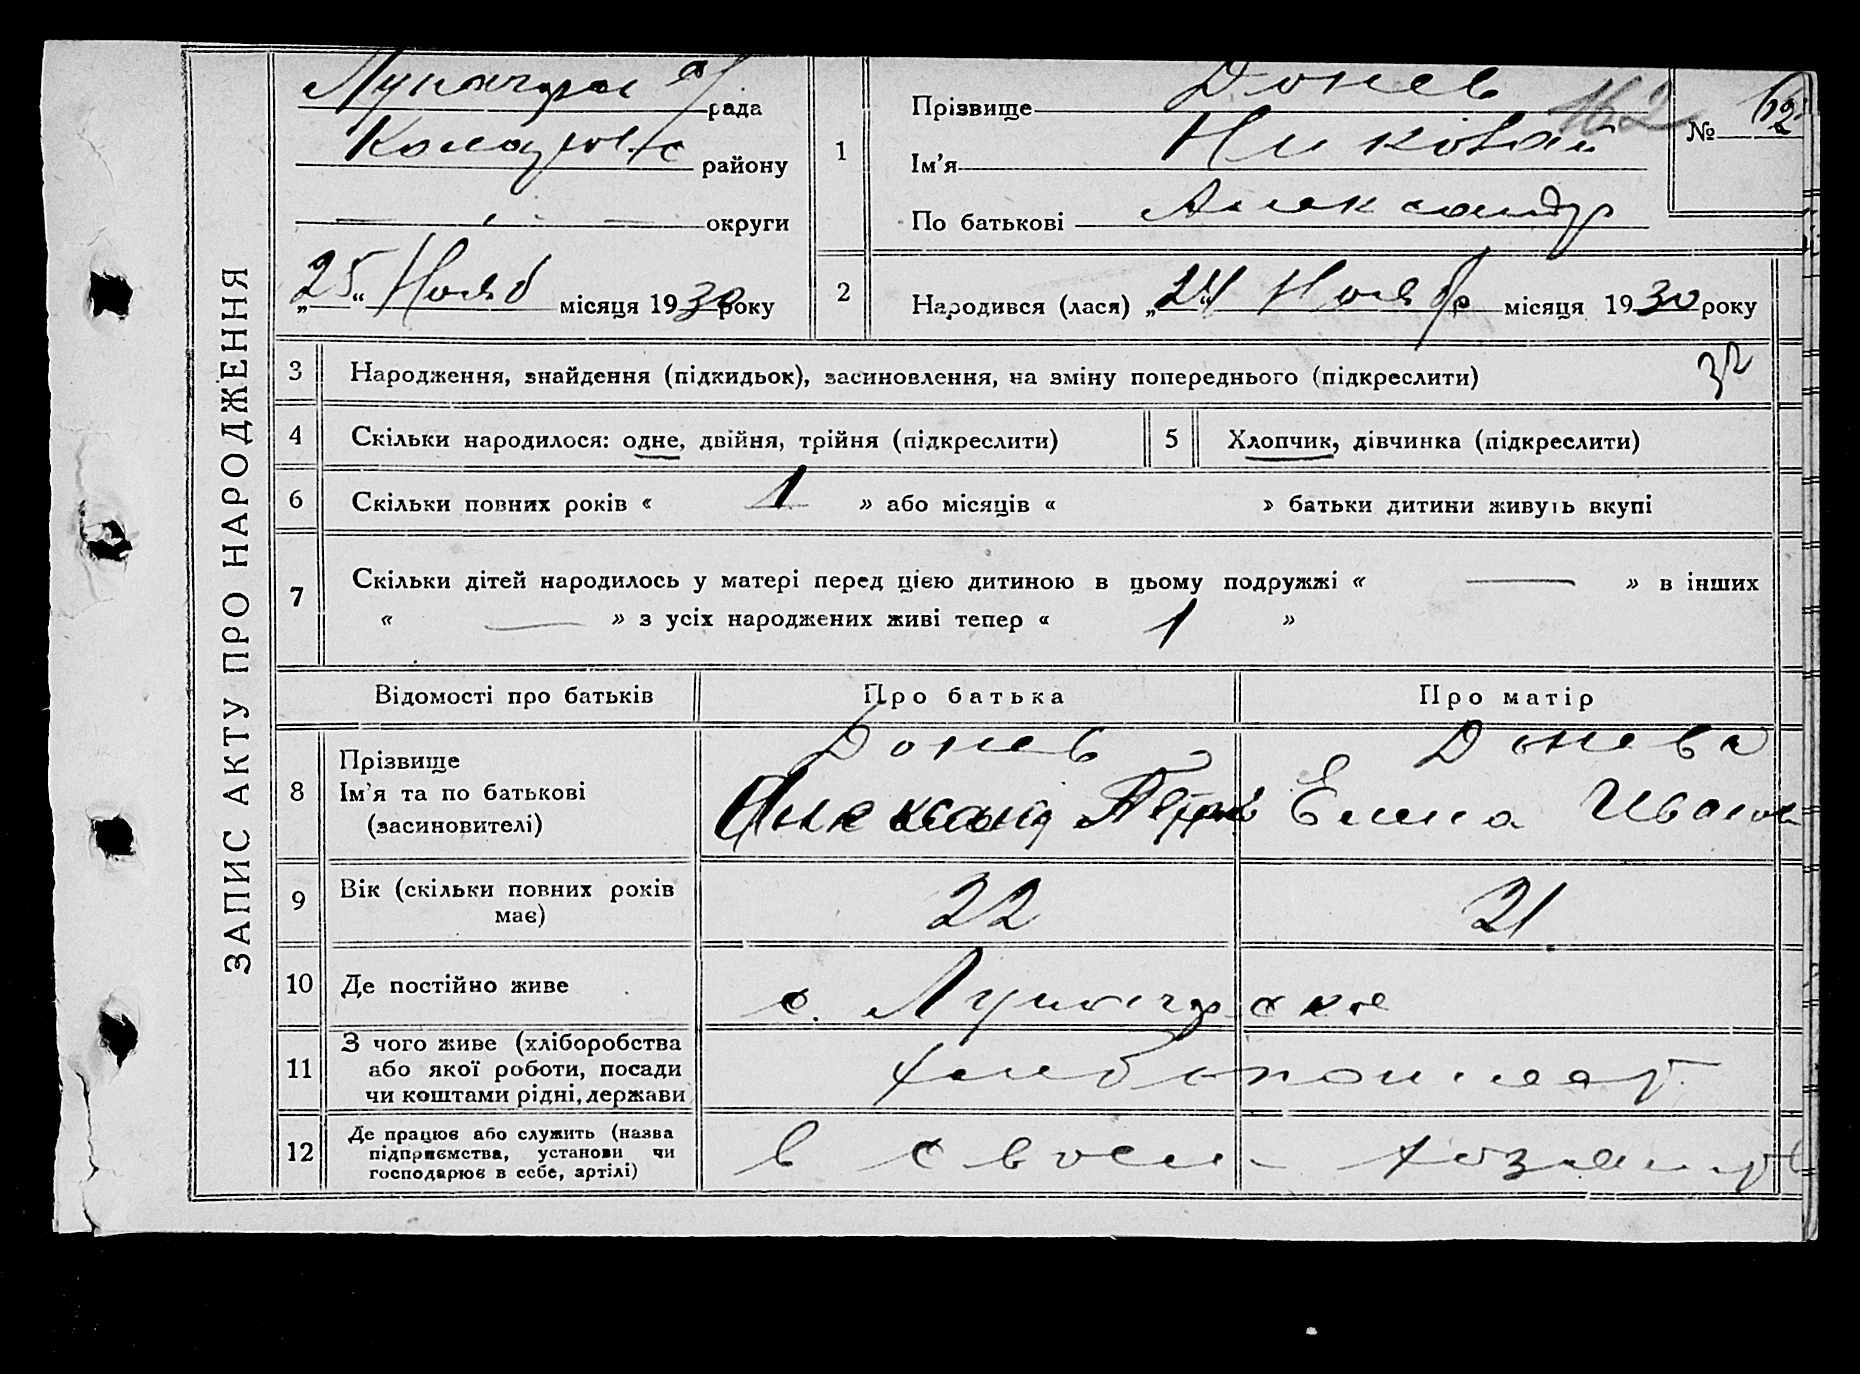 ЗАПИС АКТУ ПРО НАРОДЖЕННЯ
рада
району
округи
„25“ Нояб місяця 1930 року
1
Прізвище Донев
Ім'я Николай
По батькові Александр
162
№ 62
2
Народився (лася) „24“Ноябр місяця 1930 року
3 Народження, знайдення (підкидьок), засиновлення, на зміну попереднього (підкреслити)
4 Скільки народилося: одне, двійня, трійня (підкреслити)
5 Хлопчик, дівчинка (підкреслити)
6 Скільки повних років « 1 » або місяців « » батьки дитини живуть вкупі
7 Скільки дітей народилось у матері перед цією дитиною в цьому подружжі « — » в інших
« — » з усіх народжених живі тепер « 1 »
Відомості про батьків
Про батька
Про матір
8 Прізвище
Ім'я та по батькові
(засиновителі)
Донев
Александ Петров
Донева
Елена Иванов
9 Вік (скільки повних років
має)
22
21
10 Де постійно живе
с. Луначарское
11 З чого живе (хліборобства
або якої роботи, посади
чи коштами рідні, держави
хлебопашеат
12 Де працює або служить (назва
підприємства, установи чи
господарює в себе, артілі)
в своем хозяйстр